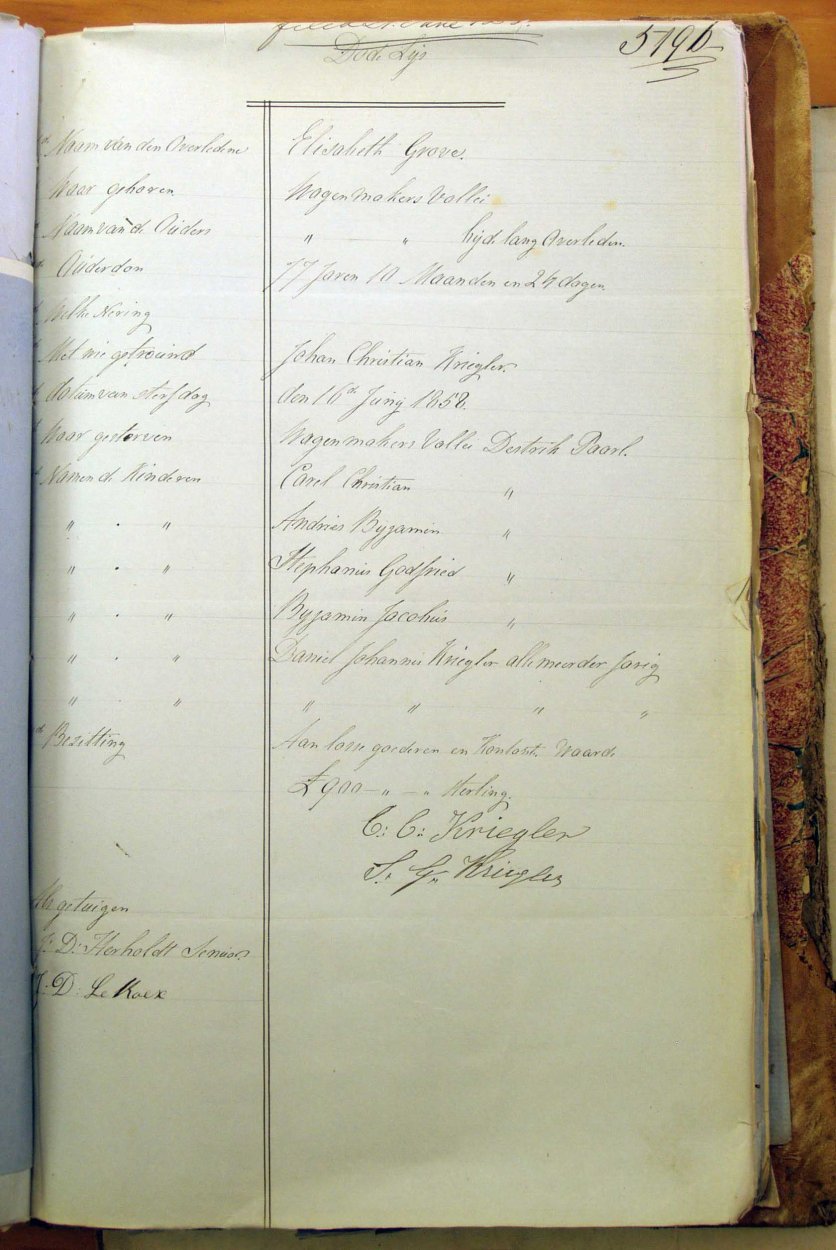 5196
Dode Lijs
Naam van den Overledene Elisabeth Grove.
Waar geboren Wagenmakers Vallei
Naam van d. Ouders " " bijde lang Overleden.
Ouderdom 77 Jaren 10 Maanden en 24 dagen.
Welke Nering
Met wie getrouwd Johan Christian Kriegler.
datum van sterfdag den 16de Junij 1858.
Waar gestorven Wagenmakers Vallei Destrik Paarl.
Namen d. Kinderen Carel Christian "
" . " Andries Byjamin "
" . " Stephanus Godfried "
" . " Byjamin Jacobus "
" . " Daniel Johannis Kriegler alle meerder Jarig
" " " " " "
Bezitting Aan losse goederen en Kontost. Waarde
£900 – " – " Sterling.
C: C: Kriegler
S. G. Kriegler
Als getuigen
J: D: Herholdt Senior.
J: D: Le Roex